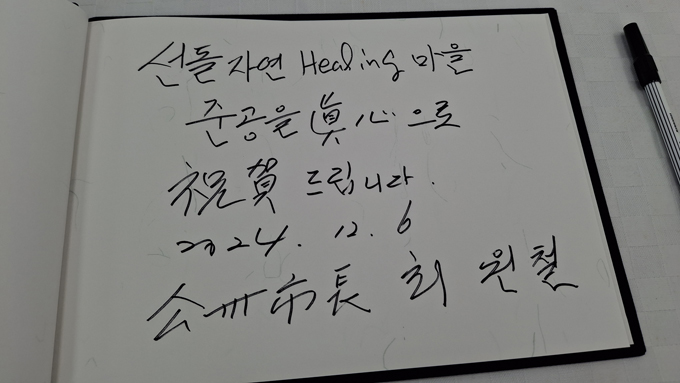 선돌자연 Healing 마을
준공을 眞心으로
祝賀 드립니다.
2024. 12. 6
公州市長 최 원철